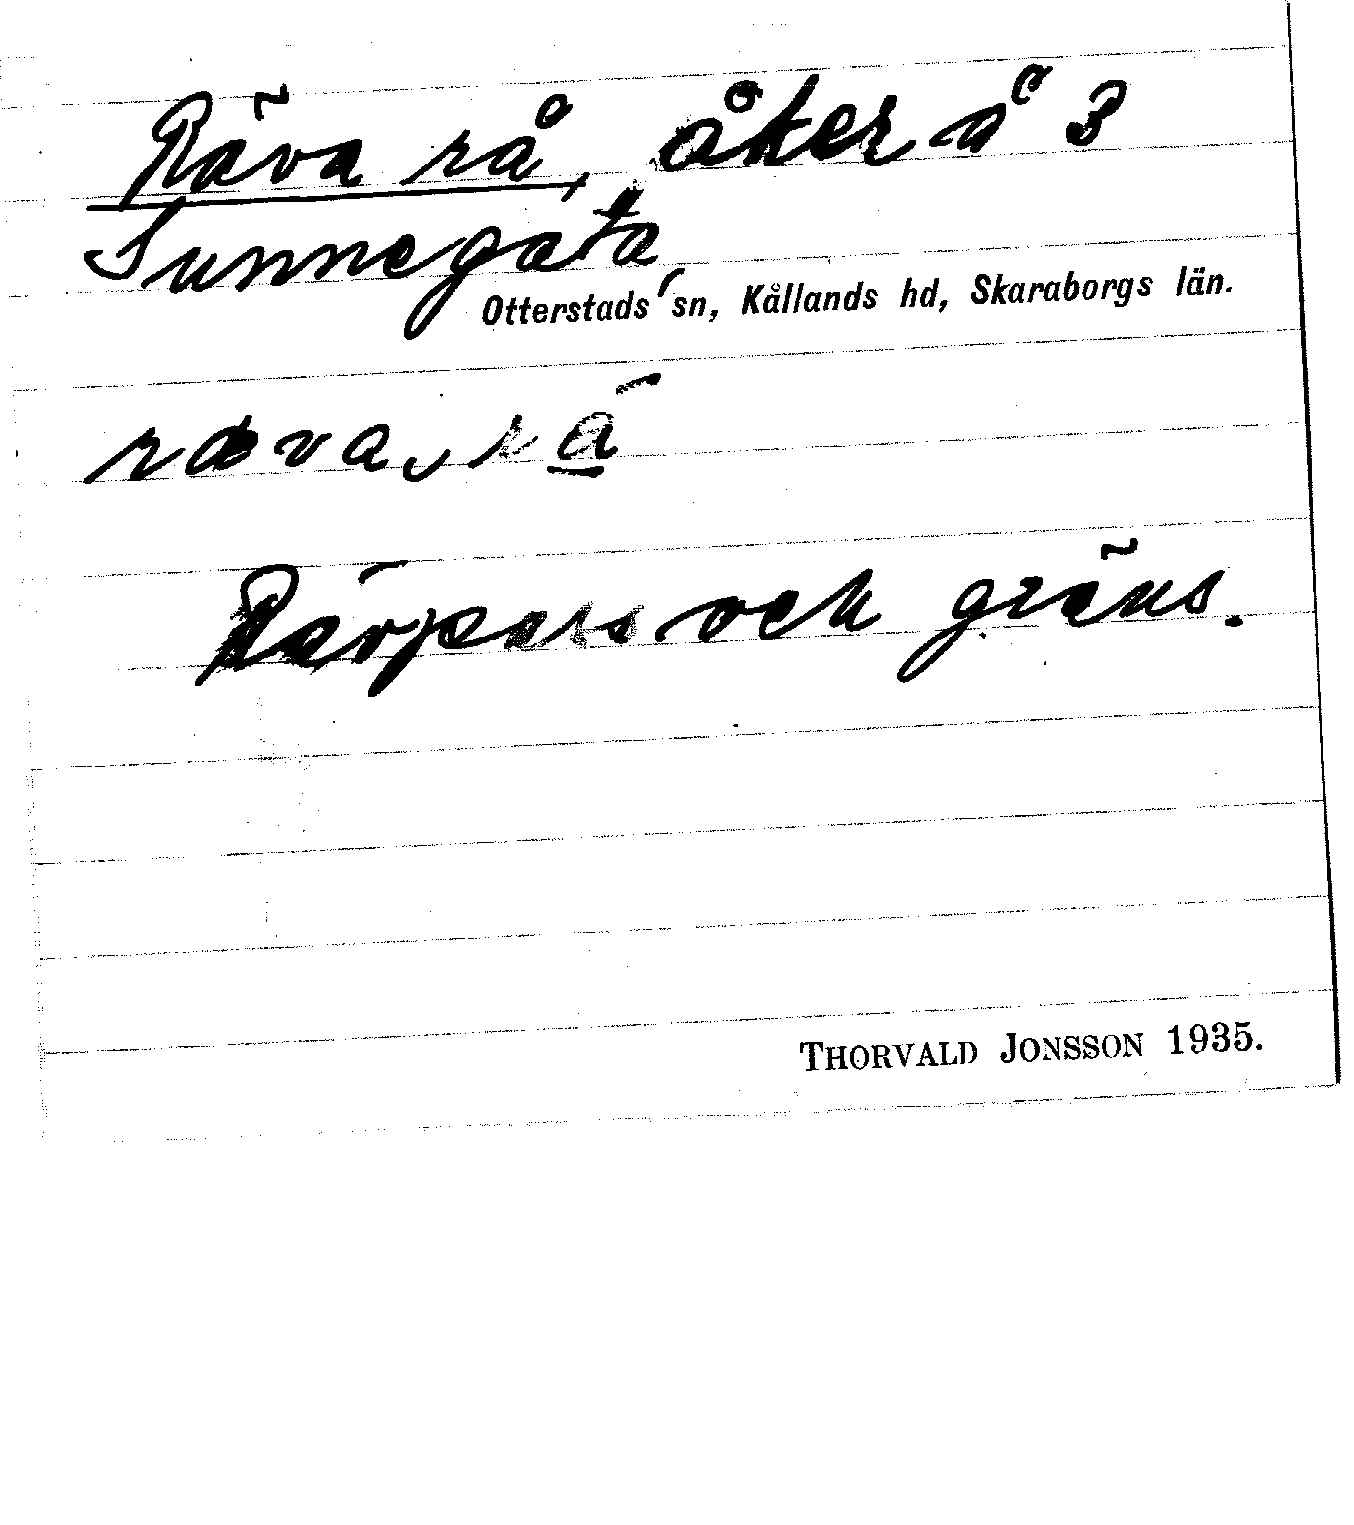 Räva rå, åker å 3
Sunnegåta,
Otterstads sn, Kållands hd, Skaraborgs län.
ræva rå
och gräns.
THORVALD JONSSON 1935.